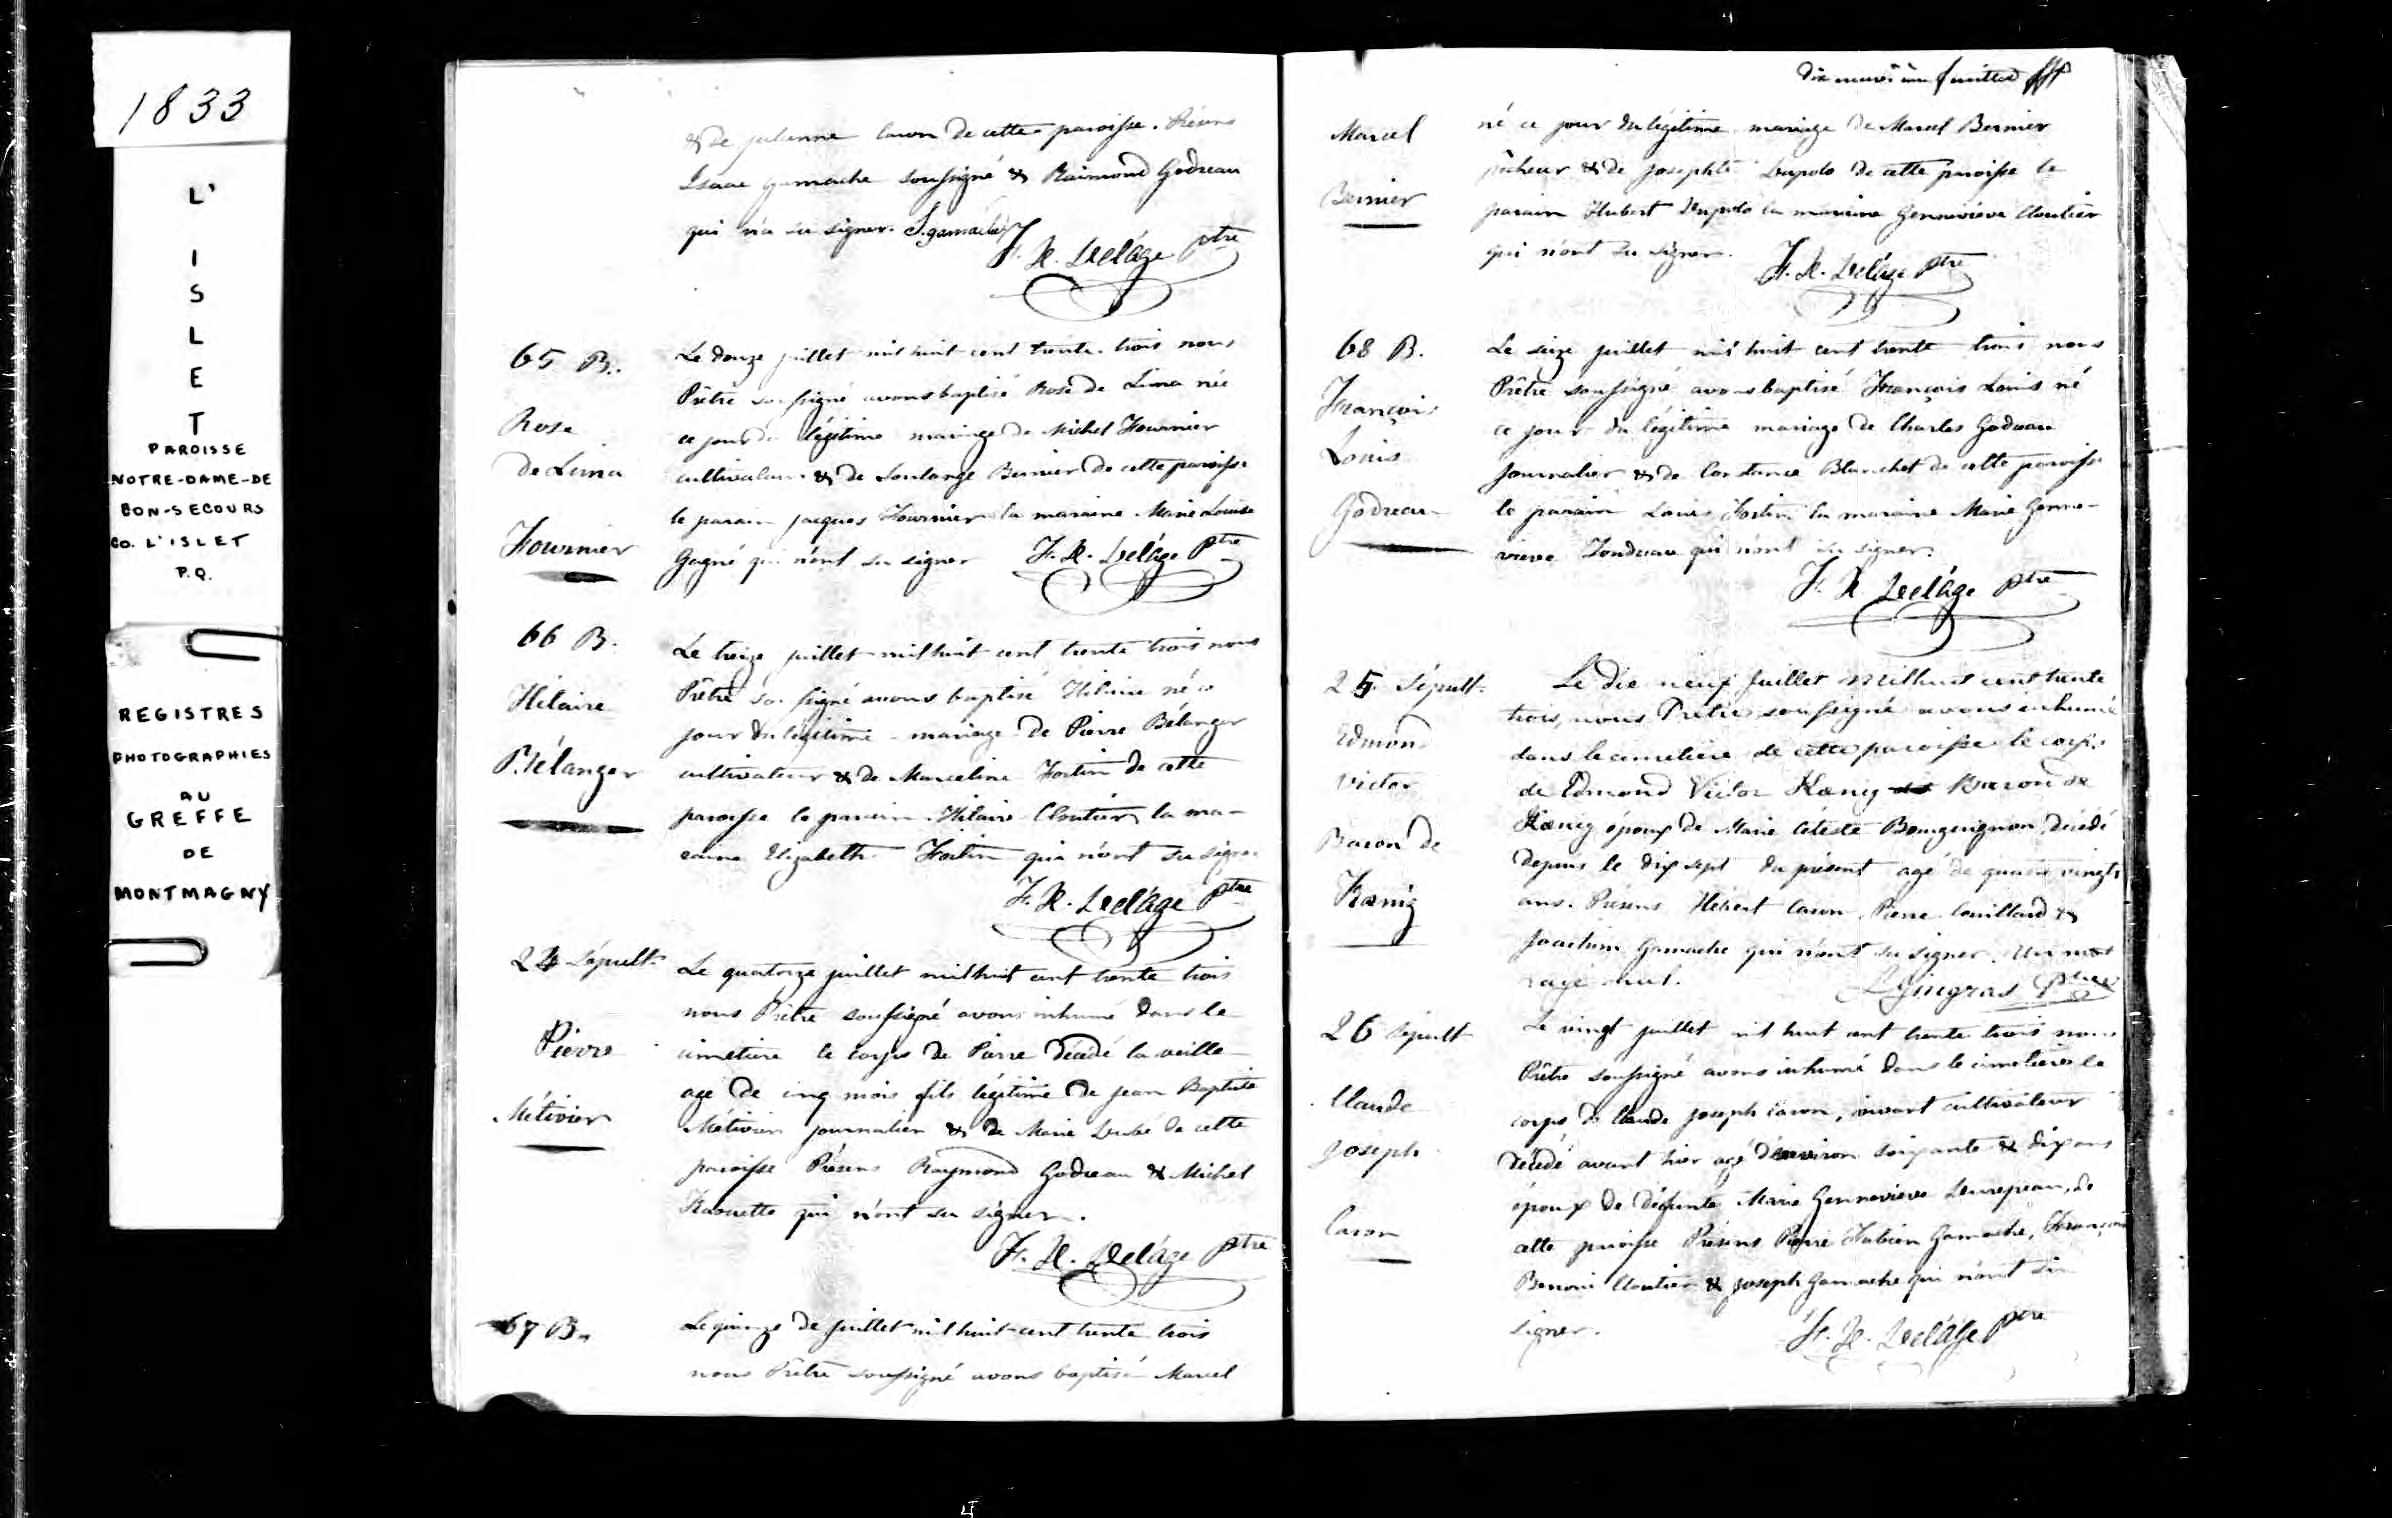 1833
L'
I
S
L
E
T
PAROISSE
NOTRE-DAME-DE
BON-SECOURS
CO. L'ISLET
P.Q.
REGISTRES
PHOTOGRAPHIES
AU
GREFFE
DE
MONTMAGNY
& de julienne Caron de cette paroisse. Présens
Isaac Gamache soussigné & Raimond Godreau
qui n'a su signer. I. gamache
F. R. Deláge ptre
65 B.
Rose
de Lima
Fournier
Le douze juillet mil huit cent trente trois nous
Prêtre soussigné avons baptisé Rose de Lima née
ce jour du légitime mariage de Michel Fournier
cultivateur & de Soulange Bernier de cette paroisse
le parain Jacques Fournier la maraine Marie Louise
Gagné qui n'ont su signer F. R. Deláge Ptre
66 B.
Hilaire
Bélanger
Le treize juillet mil huit cent trente trois nous
Prêtre soussigné avons baptisé Hilaire né ce
jour du légitime mariage de Pierre Bélanger
cultivateur & de Marceline Fortin de cette
paroisse le parain Hilaire Cloutier la ma-
raine Elizabeth Fortin qui n'ont su signer
F. R. Deláge Ptre
24 Sépult.
Pierre
Métivier
Le quatorze juillet mil huit cent trente trois
nous Prêtre soussigné avons inhumé dans le
cimetiere le corps de Pierre décédé la veille
agé de cinq mois fils légitime de Jean Baptiste
Métivier journalier & de Marie Dubé de cette
paroisse Présens Raymond Godreau & Michel
qui n'ont su signer.
F. R. Deláge ptre
67 B.
Le quinze de juillet mil huit cent trente trois
nous Prêtre soussigné avons baptisé Marcel
dix neuvième feuillet
Marcel
Bernier
né ce jour du légitime mariage de Marcel Bernier
pêcheur & de Josephte de cette paroisse le
parain Hubert la maraine Genneviève Cloutier
qui n'ont su signer.
F. R. Deláge ptre
68 B.
François
Louis
Godreau
Le seize juillet mil huit cent trente trois nous
Prêtre soussigné avons baptisé François Louis né
ce jour du légitime mariage de Charles Godreau
journalier & de Constance Blanchet de cette paroisse
le parain Louis Fortin la maraine Marie Genne-
vieve qui n'ont su signer.
F. R. Deláge ptre
25 Sépult.
Edmond
Victor
Baron de
Kœnig
Le dix neuf Juillet mil huit cent trente
trois, nous Prêtre soussigné avons inhumé
dans le cimetière de cette paroisse le corps
de Edmond Victor Kœnig Baron de
Kœnig époux de Marie Céleste Bourguignon, décédé
depuis le dix sept du présent agé de quatre vingts
ans. Présens Hébert Caron, Pierre Couillard &
Joachim Gamache qui n'ont su signer. Un mot
rayé nul.
Gingras Ptre
26 Sépult
Claude
Joseph
Caron
Le vingt juillet mil huit cent trente trois nous
Prêtre soussigné avons inhumé dans le cimetiere le
corps de Claude Joseph Caron, vivant cultivateur
décédé avant hier agé d'environ soixante & dix ans
époux de défunte Marie Genneviève de
cette paroisse Présens Pierre Fabien Gamache, François
Benoni Cloutier & Joseph Gamache qui n'ont su
signer.
F. R. Deláge ptre